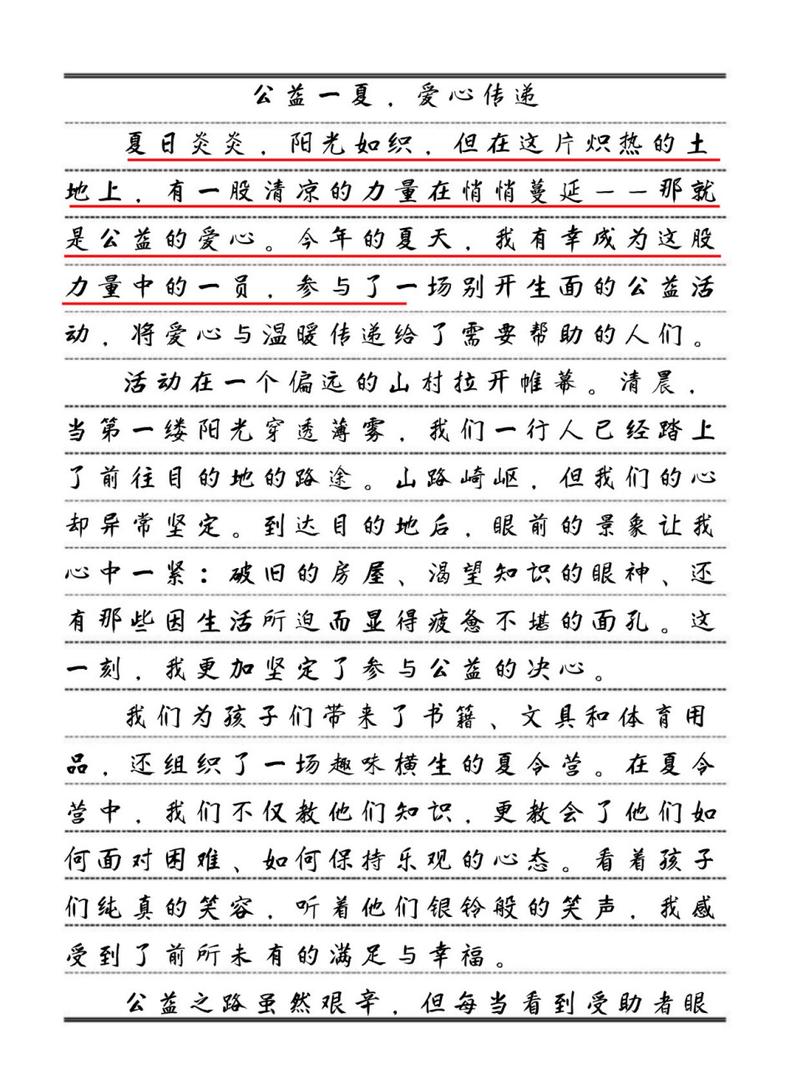 公益一夏，爱心传递
夏日炎炎，阳光如织，但在这片炽热的土
地上，有一股清凉的力量在悄悄蔓延——那就
是公益的爱心。今年的夏天，我有幸成为这股
力量中的一员，参与了一场别开生面的公益活
动，将爱心与温暖传递给了需要帮助的人们。
活动在一个偏远的山村拉开帷幕。清晨，
当第一缕阳光穿透薄雾，我们一行人已经踏上
了前往目的地的路途。山路崎岖，但我们的心
却异常坚定。到达目的地后，眼前的景象让我
心中一紧：破旧的房屋、渴望知识的眼神、还
有那些因生活所迫而显得疲惫不堪的面孔。这
一刻，我更加坚定了参与公益的决心。
我们为孩子们带来了书籍、文具和体育用
品，还组织了一场趣味横生的夏令营。在夏令
营中，我们不仅教他们知识，更教会了他们如
何面对困难、如何保持乐观的心态。看着孩子
们纯真的笑容，听着他们银铃般的笑声，我感
受到了前所未有的满足与幸福。
公益之路虽然艰辛，但每当看到受助者眼